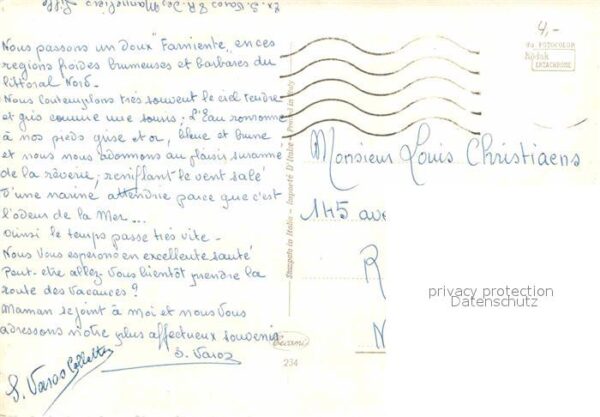 Nous passons un doux "Farniente", en ces
régions froides brumeuses et barbares du
littoral Nord.
Nous Contemplons très souvent le ciel tendre
et gris comme une souris; l'Eau ronronne
à nos pieds grise et or, bleue et brune
et nous nous adonnons au plaisir suranné
de la rêverie; reniflant le vent salé
d'une narine attendrie parce que c'est
l'odeur de la Mer...
ainsi le temps passe très vite -
Nous Vous espérons en excellente santé
Peut-être allez Vous bientôt prendre la
route des Vacances?
Maman se joint à moi et nous Vous
adressons notre plus affectueux souvenir
S. Varoz
S. Varoz Collette
4,-
da FOTOCOLOR
Kodak
EKTACHROME
Stampato in Italia - Importé D'Italie - Printed in Italy
Cecami
234
Monsieur Louis Christiaens
145 ave
R
N
privacy protection
Datenschutz